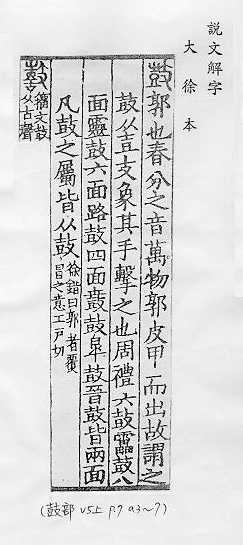 說文解字
大徐本
鼓郭也春分之音萬物郭皮甲而出故謂之
鼓从壴支象其手擊之也周禮六鼓靁鼓八
面靈鼓六面路鼓四面鼖鼓皋鼓晉鼓皆兩面
凡鼓之屬皆从鼓
徐鍇曰郭者覆
冒之意工戶切
籒文鼓
从古聲
(鼓部 v5上 p.7 a3~7)